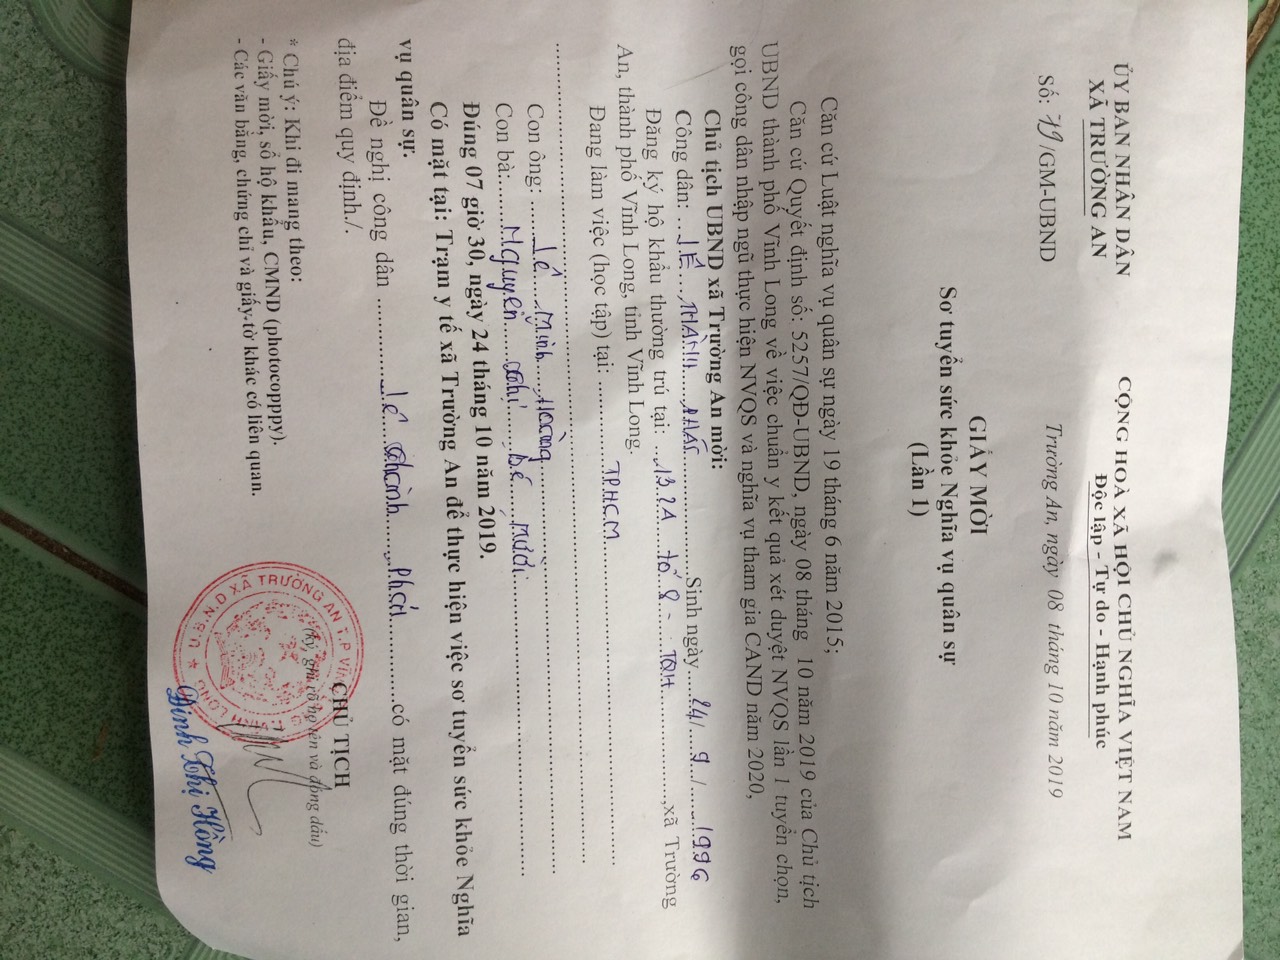 ỦY BAN NHÂN DÂN
XÃ TRƯỜNG AN
CỘNG HOÀ XÃ HỘI CHỦ NGHĨA VIỆT NAM
Độc lập - Tự do - Hạnh phúc
Số: 79/GM-UBND
Trường An, ngày 08 tháng 10 năm 2019
GIẤY MỜI
Sơ tuyển sức khỏe Nghĩa vụ quân sự
(Lần 1)
Căn cứ Luật nghĩa vụ quân sự ngày 19 tháng 6 năm 2015;
Căn cứ Quyết định số: 5257/QĐ-UBND, ngày 08 tháng 10 năm 2019 của Chủ tịch
UBND thành phố Vĩnh Long về việc chuẩn y kết quả xét duyệt NVQS lần 1 tuyển chọn,
gọi công dân nhập ngũ thực hiện NVQS và nghĩa vụ tham gia CAND năm 2020,
Chủ tịch UBND xã Trường An mời:
Công dân: LÊ THÀNH PHÁT Sinh ngày 24/ 9 / 1996
Đăng ký hộ khẩu thường trú tại: 132A tổ 8 - TQH, xã Trường
An, thành phố Vĩnh Long, tỉnh Vĩnh Long.
Đang làm việc (học tập) tại: TPHCM
Con ông: Lê Minh Hoàng
Con bà: Nguyễn Thị Bé Mười
Đúng 07 giờ 30, ngày 24 tháng 10 năm 2019.
Có mặt tại: Trạm y tế xã Trường An để thực hiện việc sơ tuyển sức khỏe Nghĩa
vụ quân sự.
Đề nghị công dân Lê Thành Phát có mặt đúng thời gian,
địa điểm quy định./.
CHỦ TỊCH
(ký, ghi rõ họ tên và đóng dấu)
* Chú ý: Khi đi mang theo:
- Giấy mời, sổ hộ khẩu, CMND (photocopppy).
- Các văn bằng, chứng chỉ và giấy tờ khác có liên quan.
U.B.N.D XÃ TRƯỜNG AN T.P VĨNH LONG T.VĨNH LONG
Đinh Thị Hồng